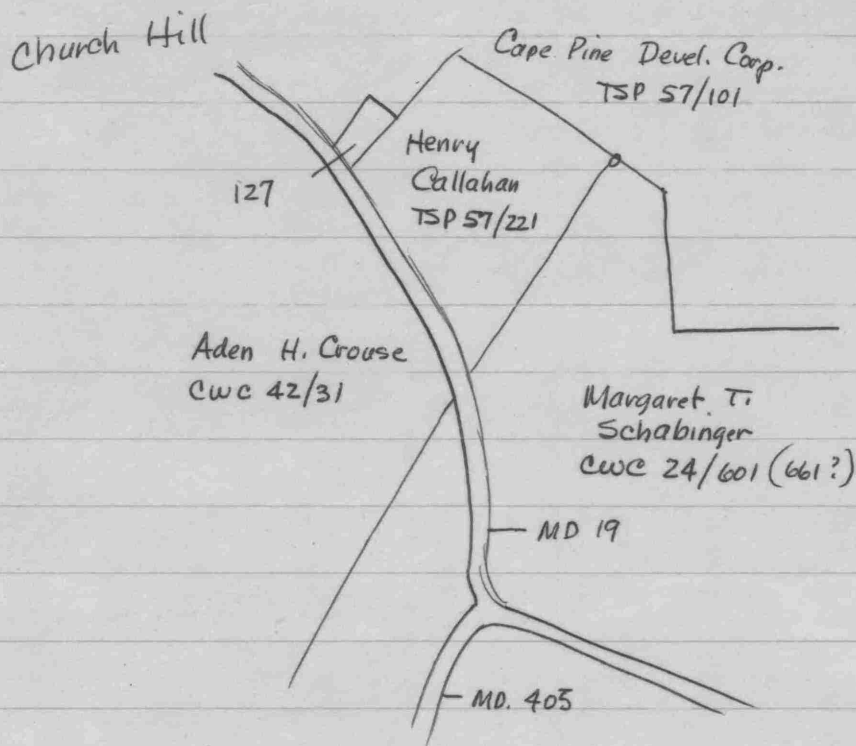 Church Hill
Cape Pine Devel. Corp.
TSP 57/101
Henry
Callahan
TSP 57/221
127
Aden H. Crouse
CWC 42/31
Margaret T.
Schabinger
CWC 24/601 (661?)
MD 19
MD. 405